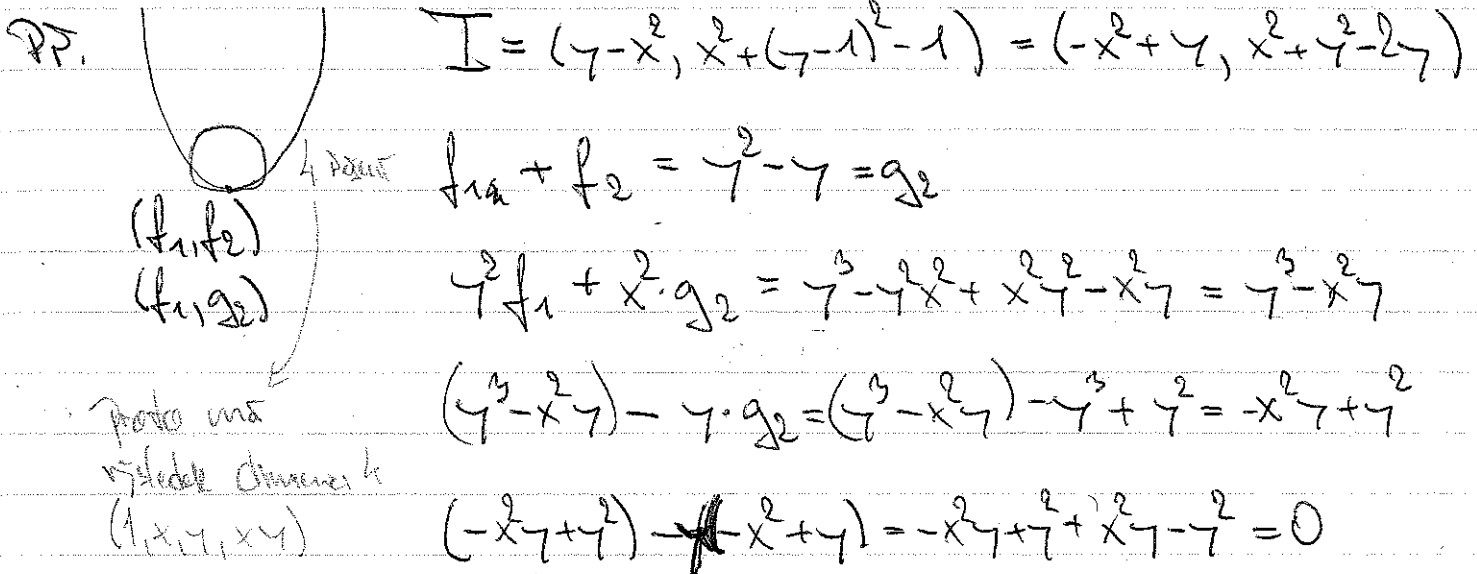 Př.
I = (y-x², x²+(y-1)²-1) = (-x²+y, x²+y²-2y)
f₁ + f₂ = y²-y = g₂
(f₁,f₂)
(f₁,g₂)
y²f₁ + x²·g₂ = y³-y²x²+x²y²-x²y = y³-x²y
(y³-x²y) - y·g₂ = (y³-x²y) - y³ + y² = -x²y+y²
proto má
výsledek dimenzi 4
(1,x,y,xy)
(-x²y+y²) - y(-x²+y) = -x²y+y²+x²y-y² = 0